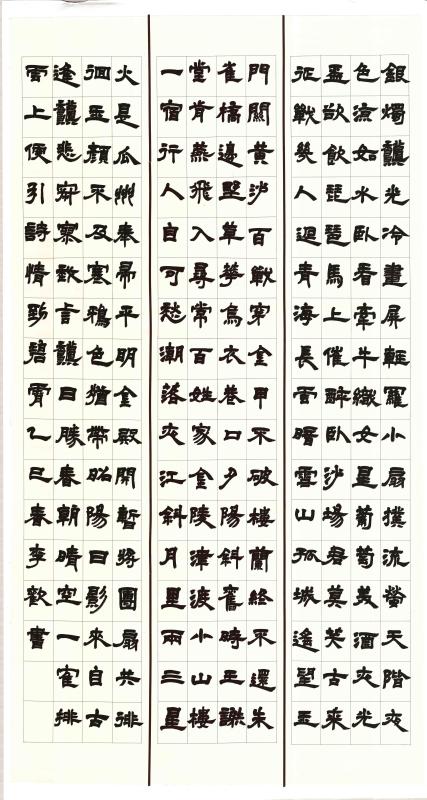 銀燭龝光冷畫屏輕羅小扇撲流螢天階夜
色涼如水臥看牽牛織女星葡萄美酒夜光
盃欲飲琵琶馬上催醉臥沙場君莫笑古來
征戰幾人迴青海長雲暗雪山孤城遙望玉
門關黃沙百戰穿金甲不破樓蘭終不還朱
雀橋邊野草華烏衣巷口夕陽斜舊時王謝
堂歬燕飛入尋常百姓家金陵津渡小山樓
一宿行人自可愁潮落夜江斜月里兩三星
火是瓜州奉帚平明金殿開暫將團扇共徘
徊玉顏不及寒鴉色猶帶昭陽日影來自古
逢龝悲寂寥我言龝日勝春朝晴空一隺排
雲上便引詩情到碧霄乙巳春李歡書